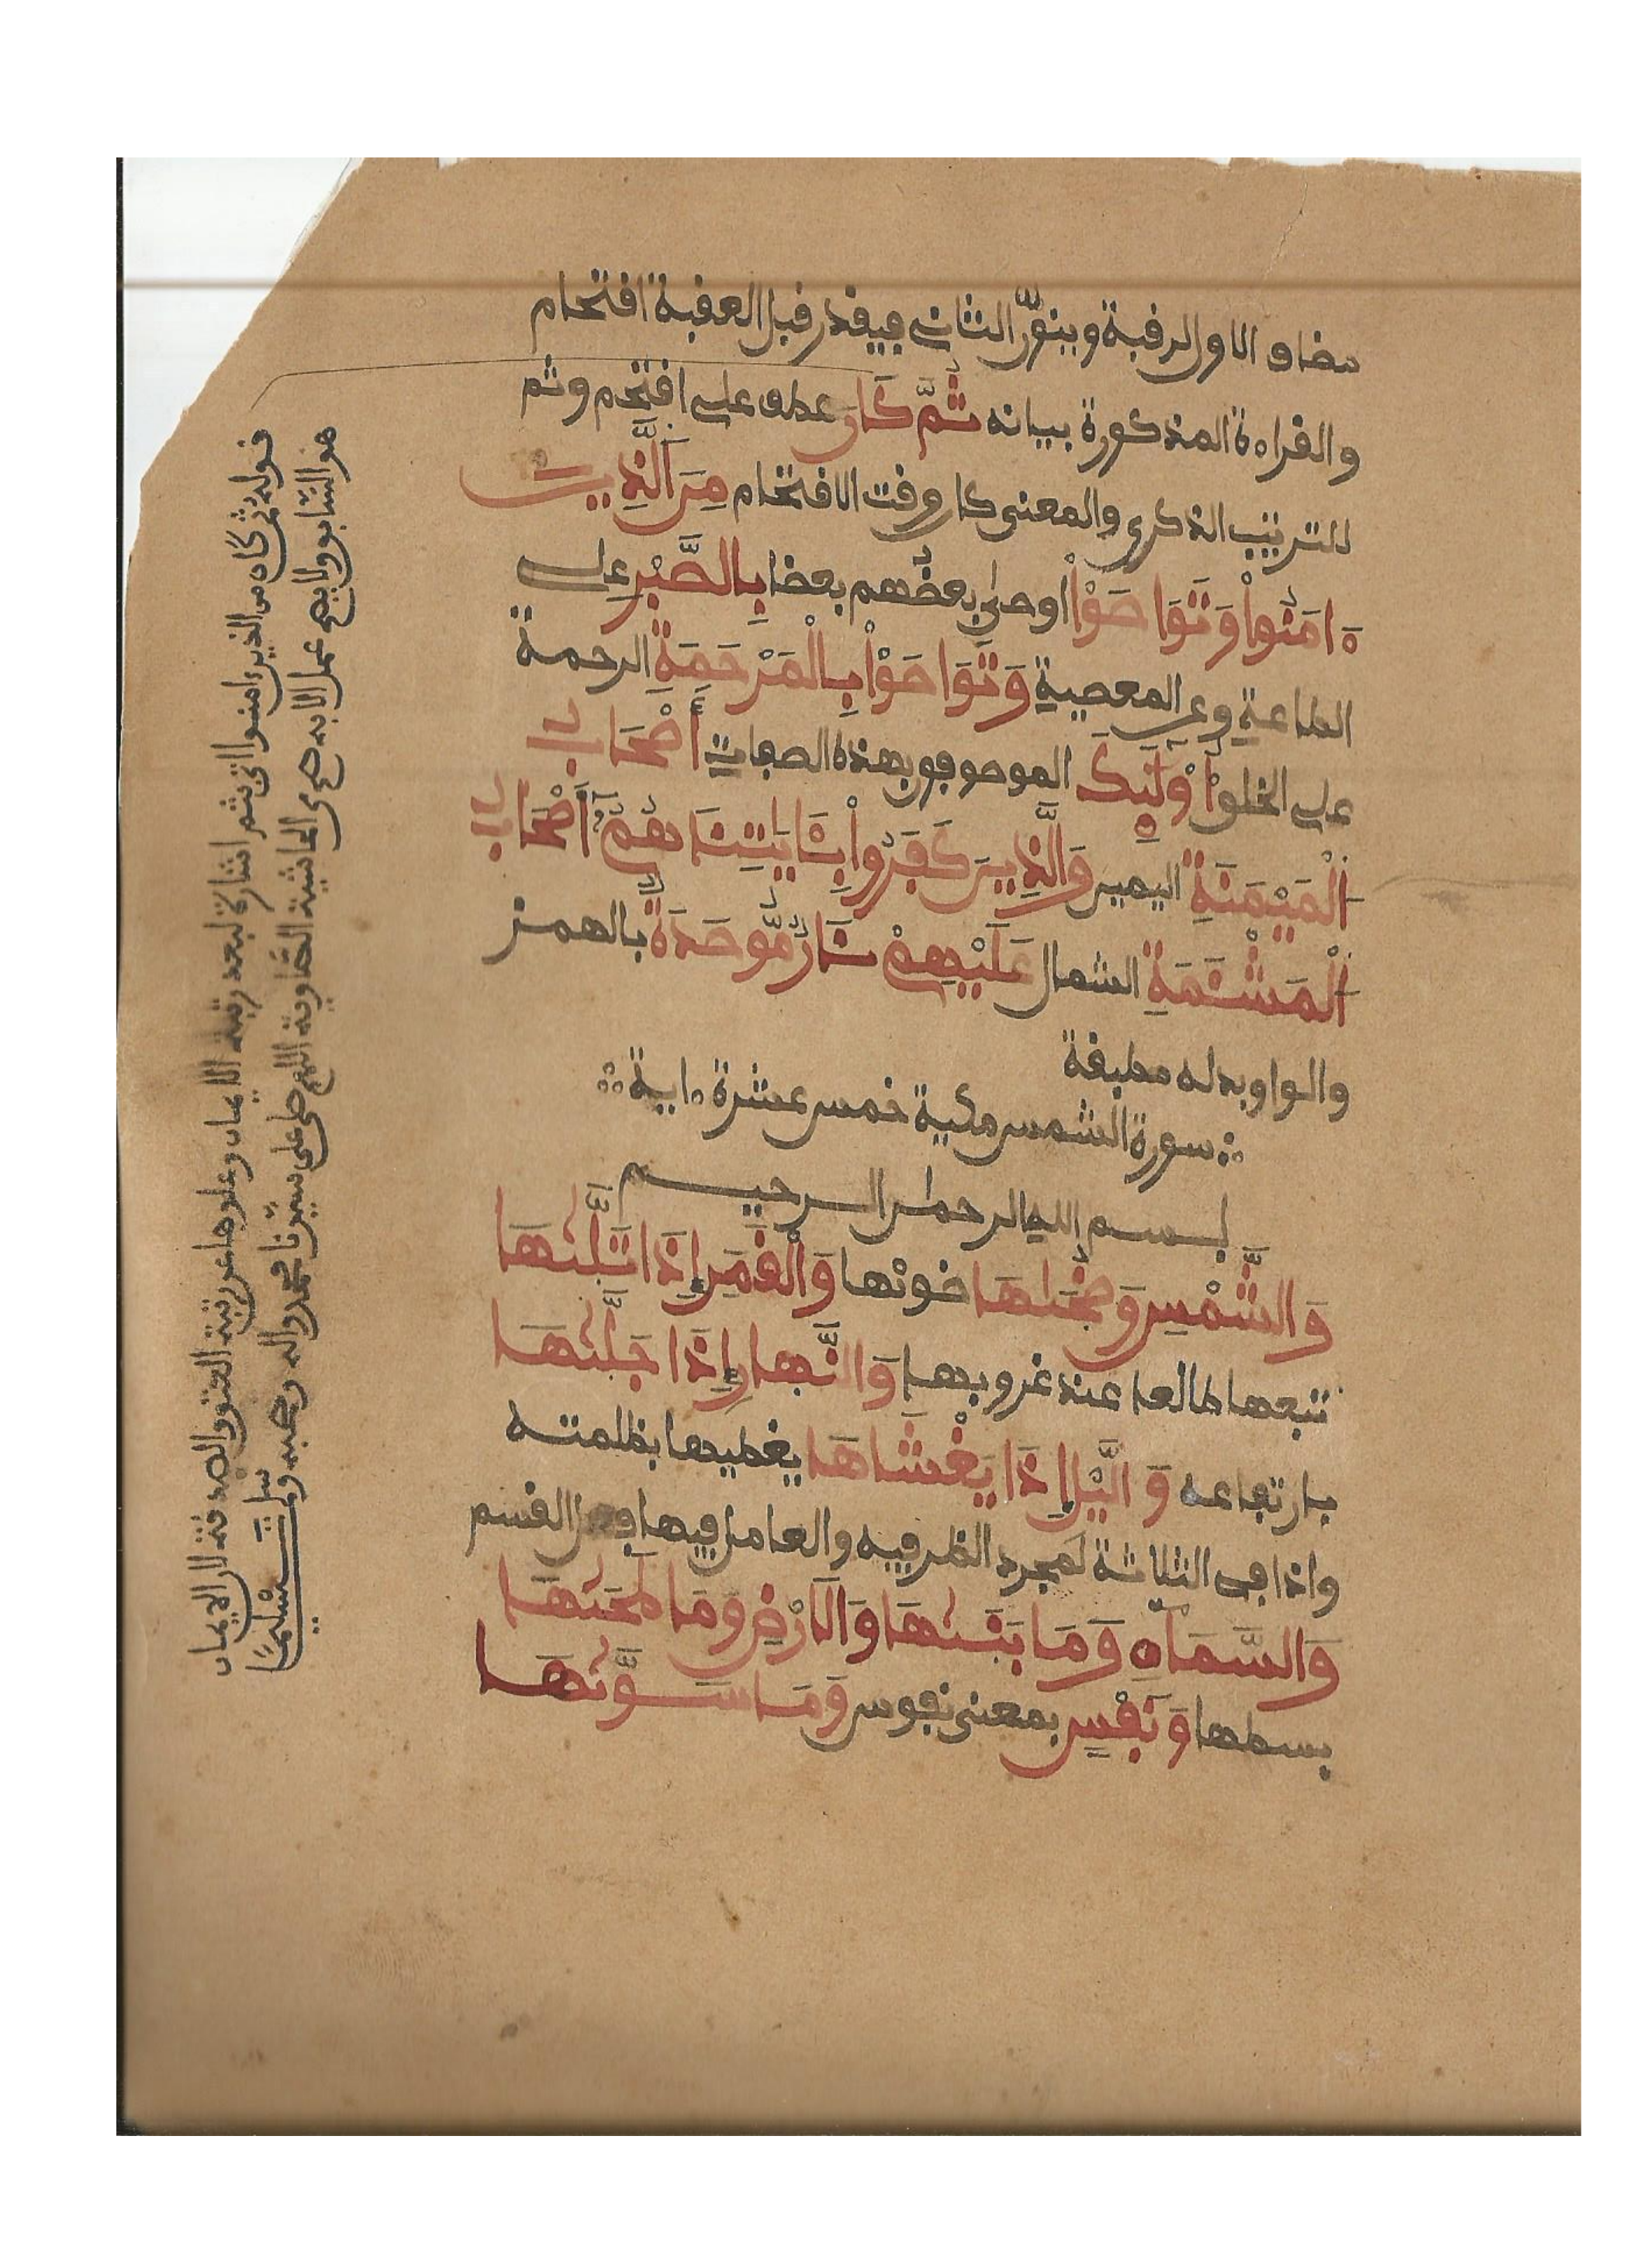 مضاف الاول لرقبة وينون الثاني فيقدر قبل العقبة اقتحام
والقراءة المذكورة بيانه ثُمَّ كَانَ عطف على اقتحم وثم
للترتيب الذكرى والمعنى كان وقت الاقتحام مِنَ الَّذِينَ
ءَامَنُواْ وَتَوَاصَوْاْ اوصى بعضهم بعضا بِالصَّبْرِ على
الطاعة وعن المعصية وَتَوَاصَوْاْ بِالْمَرْحَمَةِ الرحمة
على الخلق أُوْلَٰئِكَ الموصوفون بهذه الصفات أَصْحَابُ
الْمَيْمَنَةِ اليمين وَالَّذِينَ كَفَرُواْ بِـَٔايَٰتِنَا هُمُ أَصْحَابُ
الْمَشْـَٔمَةِ الشمال عَلَيْهِمْ نَارٌ مُّوصَدَةٌ بالهمز
والواو بدله مطبقة
سورة الشمس مكية خمس عشرة ءاية
بسم الله الرحمن الرحيم
وَالشَّمْسِ وَضُحَىٰهَا ضوئها وَالْقَمَرِ إِذَا تَلَىٰهَا
تبعها طالعا عند غروبها وَالنَّهارِ إِذَا جَلَّىٰهَا
بارتفاعه وَالَّيْلِ إِذَا يَغْشَاهَا يغطيها بظلمته
واذا في الثلاثة لمجرد الظرفيه والعامل فيها فعل القسم
وَالسَّمَآءِ وَمَا بَنَىٰهَا وَالَارْضِ وَمَا طَحَىٰهَا
بسطها وَنَفْسٍ بمعنى نفوس وَمَا سَوَّىٰهَا
قوله ثم كان من الذين ءامنوا اتى بثم اشارة لبعد رتبة الايمان وعلوها عن رتبة العتق والصدقة لان الايمان
هو السابق ولا يصح عمل الا به صح من الحاشية الصاوية اللهم صل على سيدنا محمد واله وصحبه وسلم تسليمًا